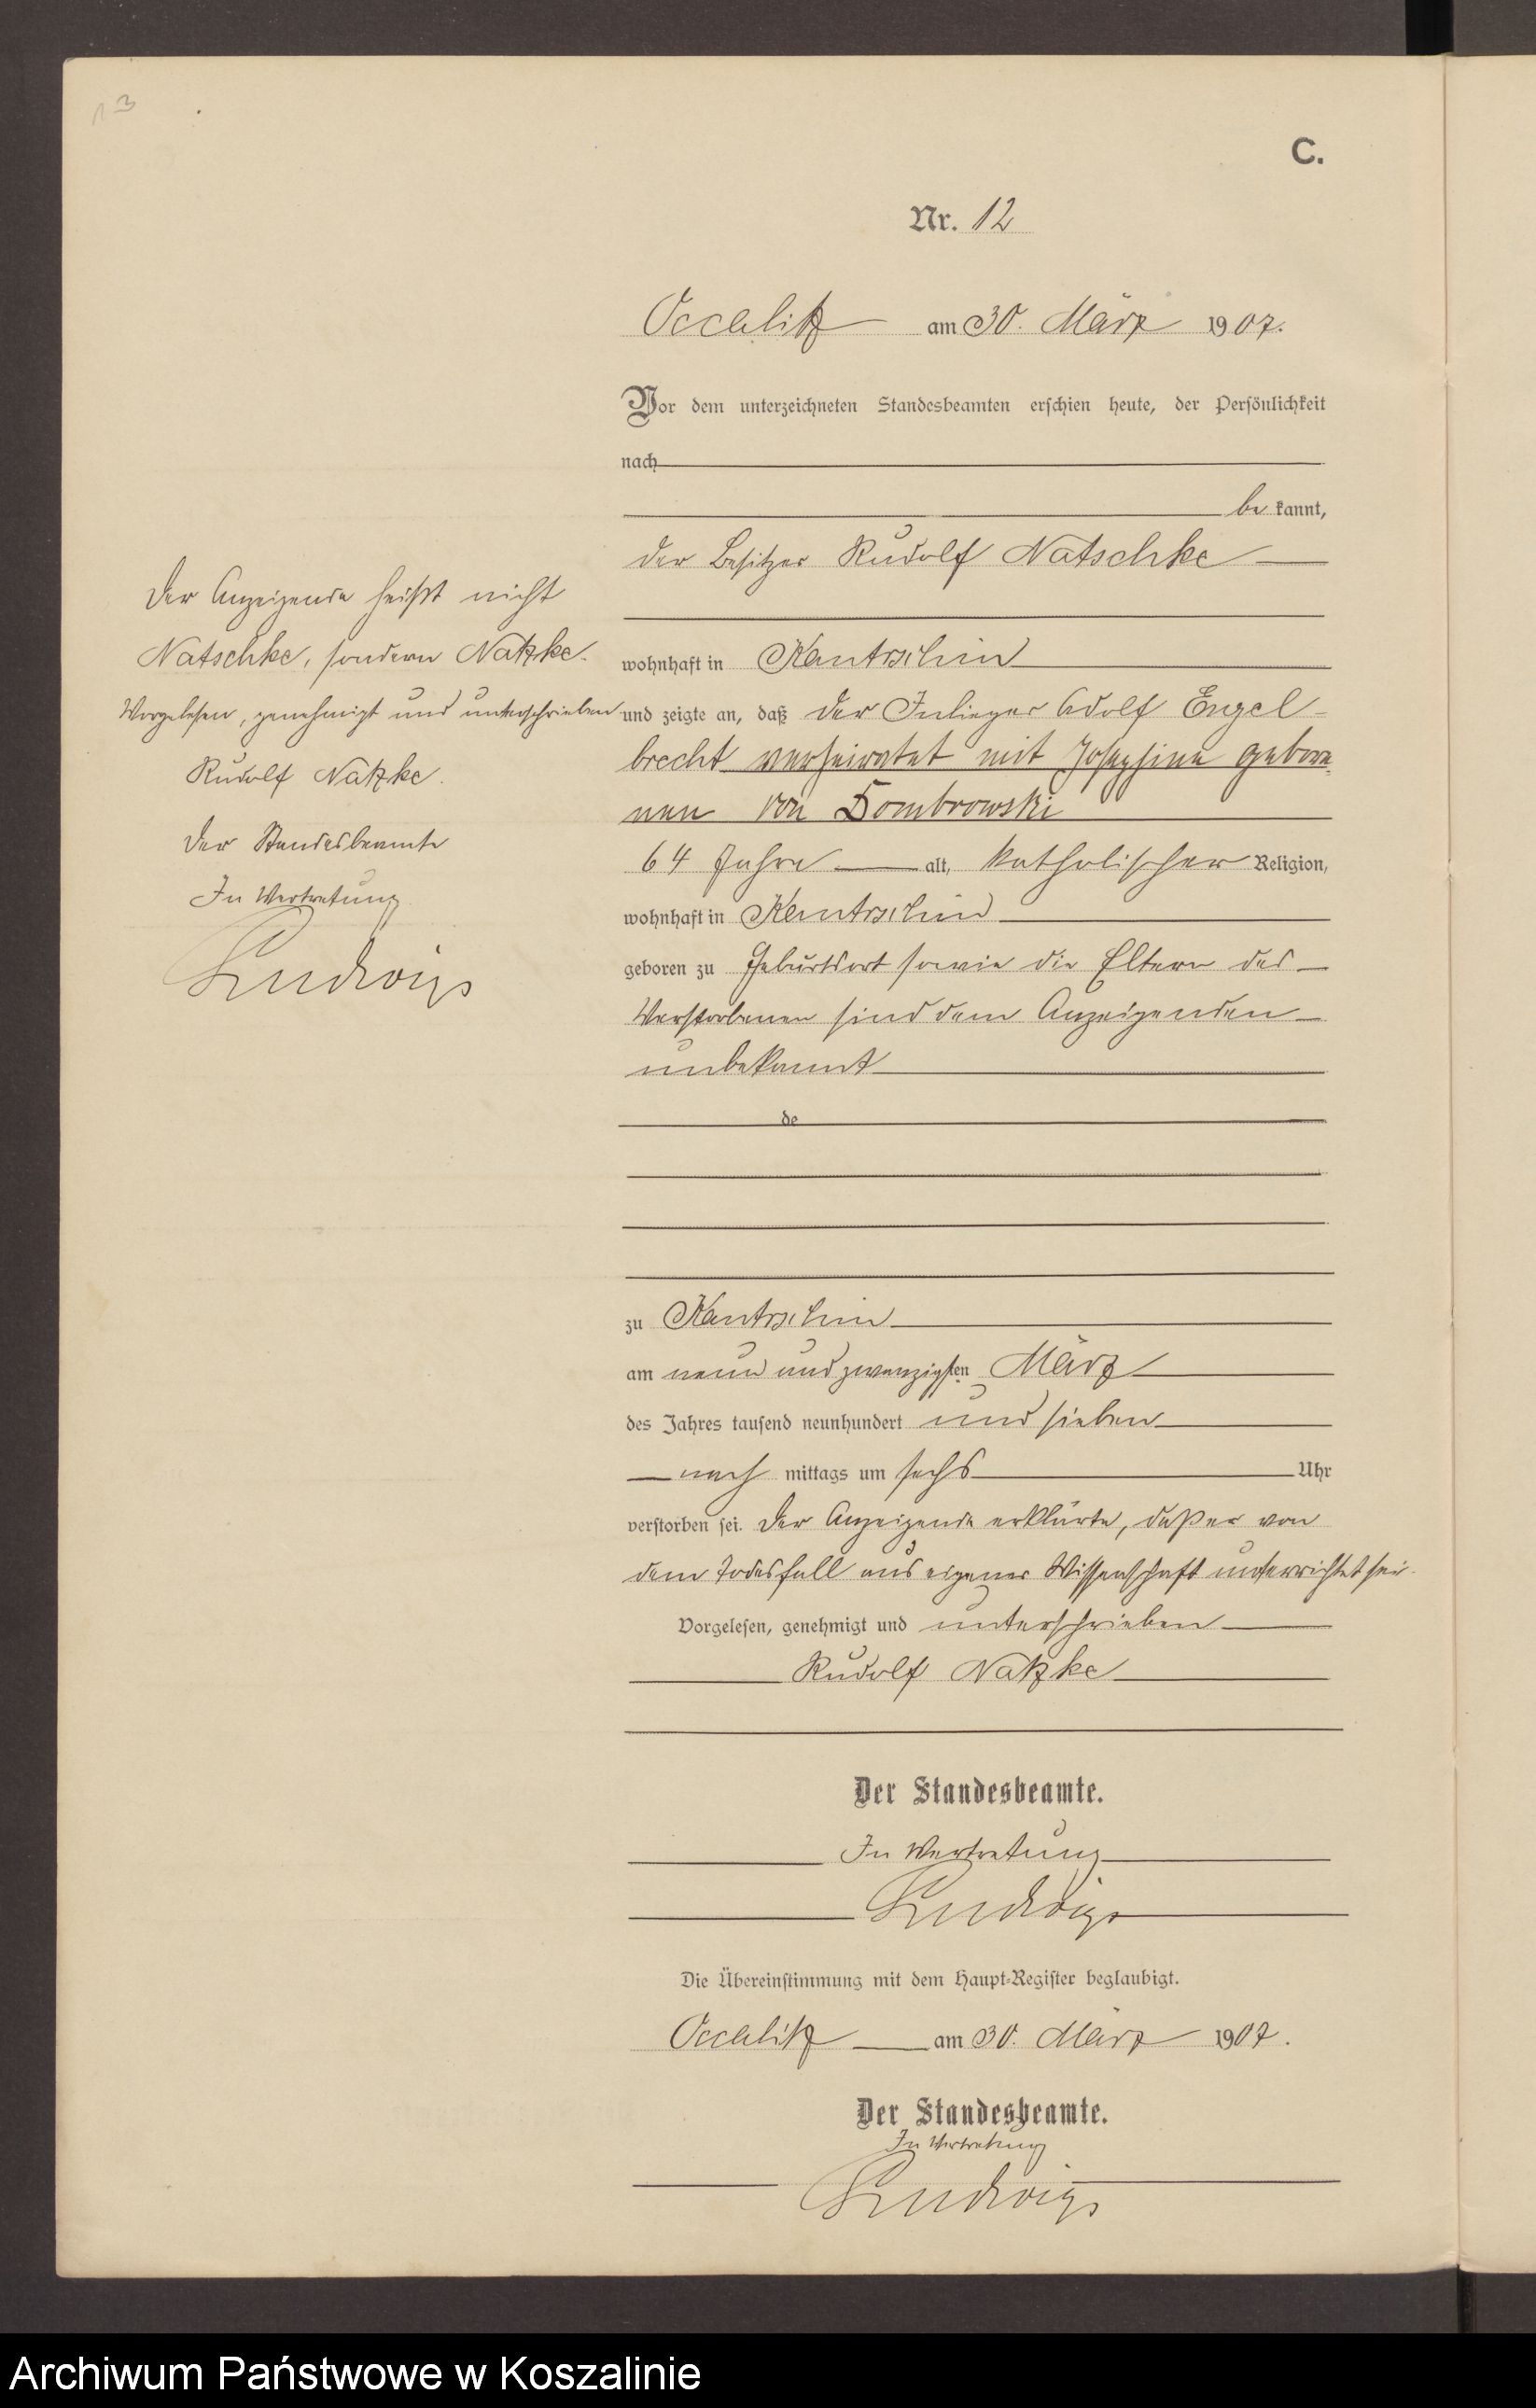 C.
Nr. 12
Occalitz am 30. März 1907.
Vor dem unterzeichneten Standesbeamten erschien heute, der Persönlichkeit
nach
be kannt,
der Besitzer Rudolf Natschke
wohnhaft in Kantrschin
und zeigte an, daß der Inlieger Adolf Engel-
brecht verheiratet mit Josephine gebore-
nen von Dombrowski
64 Jahre alt, katholischer Religion,
wohnhaft in Kantrschin
geboren zu Geburtsort sowie die Eltern des
Verstorbenen sind dem Anzeigenden
unbekannt
de
zu Kantrschin
am neun und zwanzigsten März
des Jahres tausend neunhundert und sieben
nach mittags um sechs Uhr
verstorben sei. Der Anzeigende erklärte, daß er von
dem Todesfall aus eigener Wissenschaft unterrichtet sei.
Vorgelesen, genehmigt und unterschrieben
Rudolf Natzke
Der Standesbeamte.
In Vertretung
Ludwigs
Die Übereinstimmung mit dem Haupt-Register beglaubigt.
Occalitz am 30. März 1907.
Der Standesbeamte.
In Vertretung
Ludwigs
Der Anzeigende heißt nicht
Natschke, sondern Natzke.
Vorgelesen, genehmigt und unterschrieben
Rudolf Natzke.
Der Standesbeamte
In Vertretung
Ludwigs
Archiwum Państwowe w Koszalinie